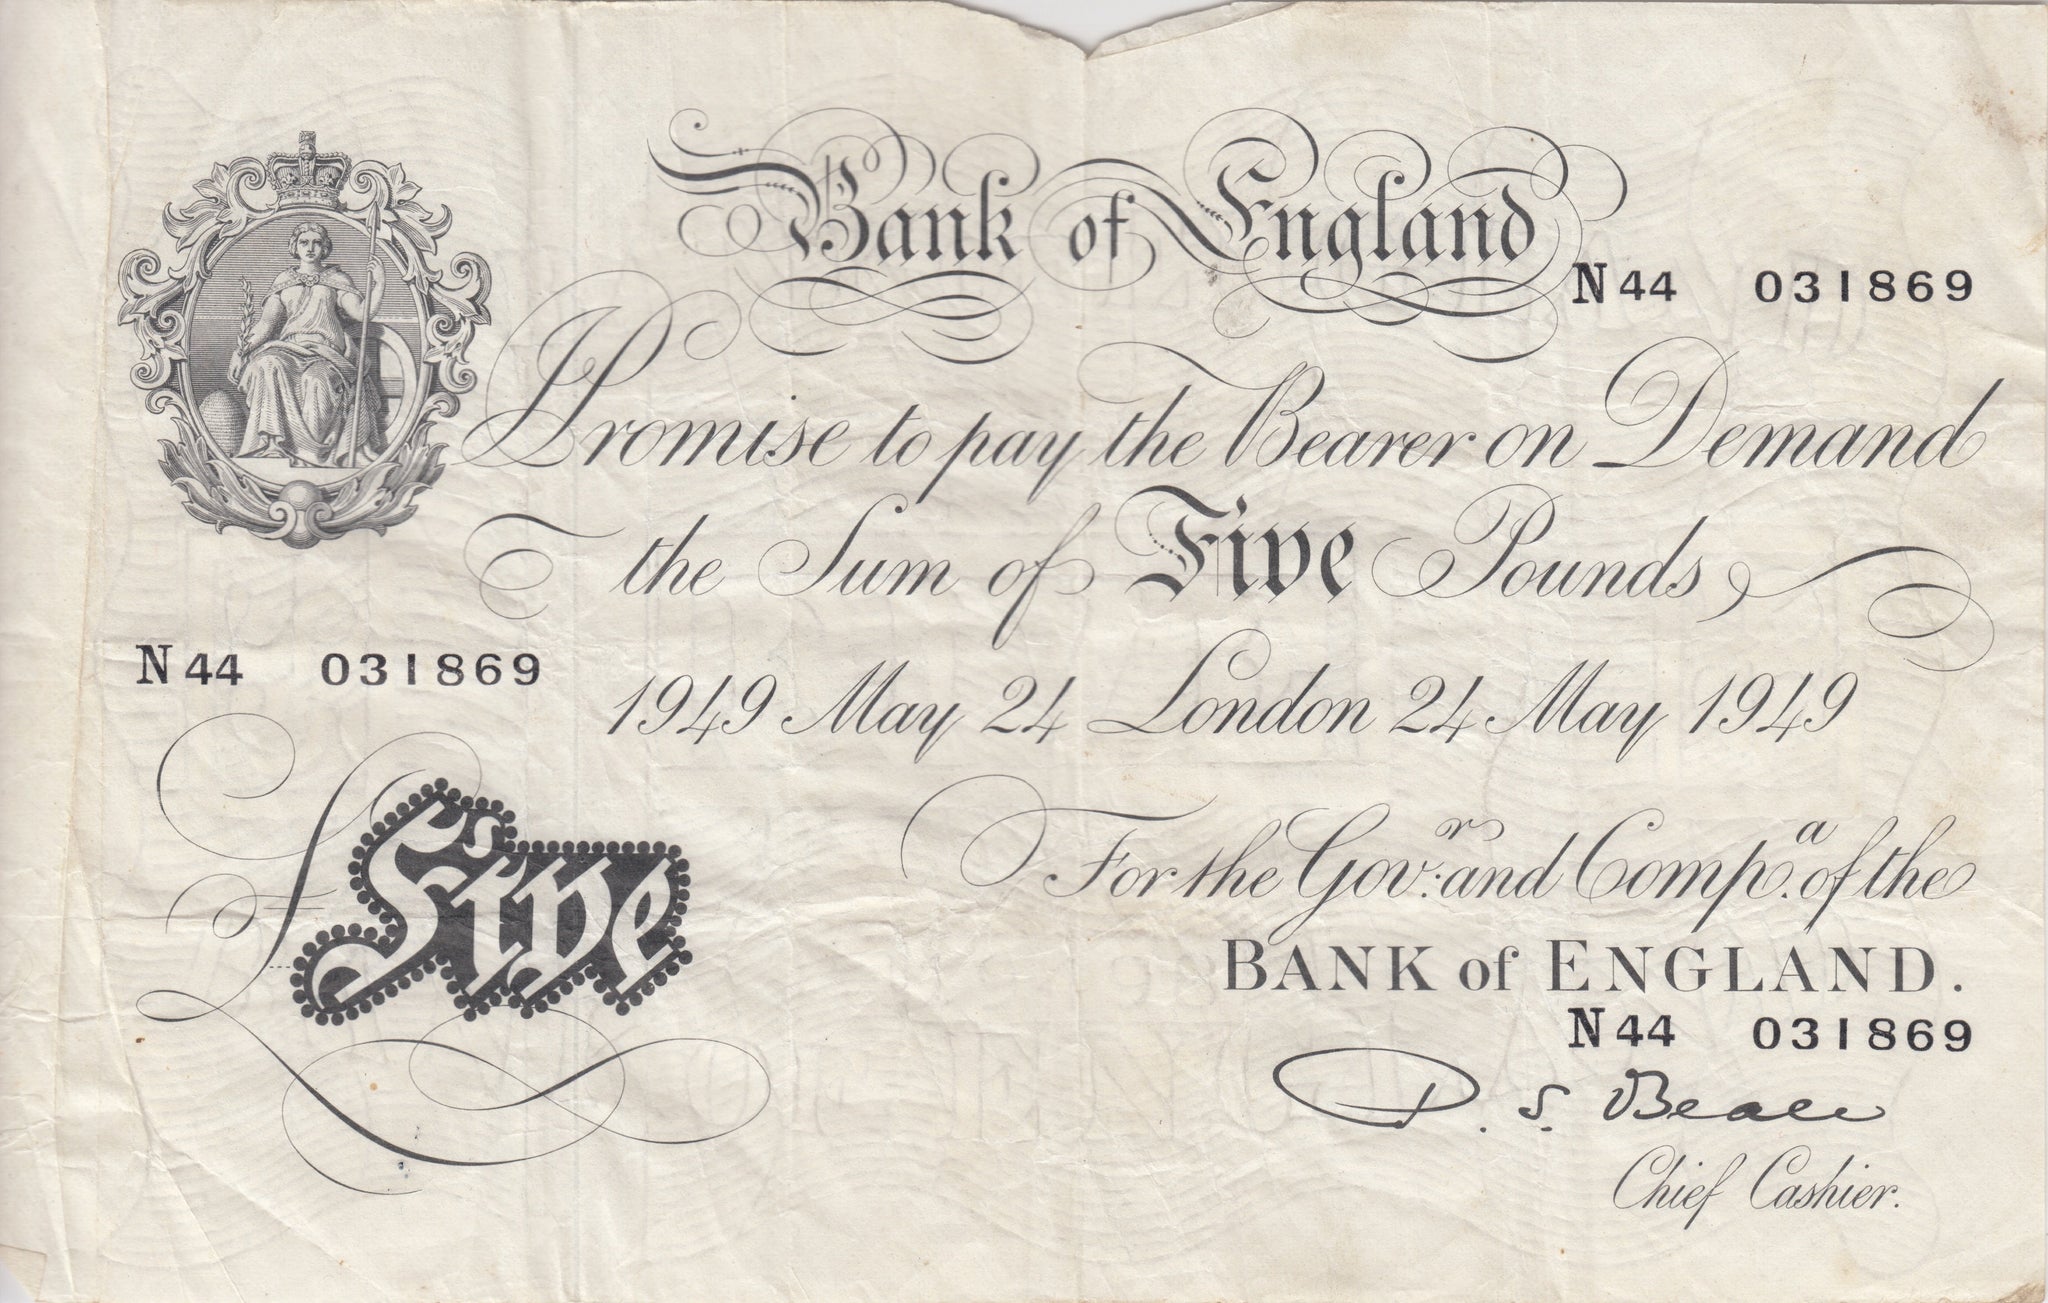 Bank of England
N44 031869
I Promise to pay the Bearer on Demand
the Sum of Five Pounds
N44 031869
1949 May 24 London 24 May 1949
£Five
For the Govr. and Compa. of the
BANK of ENGLAND.
N44 031869
P. S. Beale
Chief Cashier.